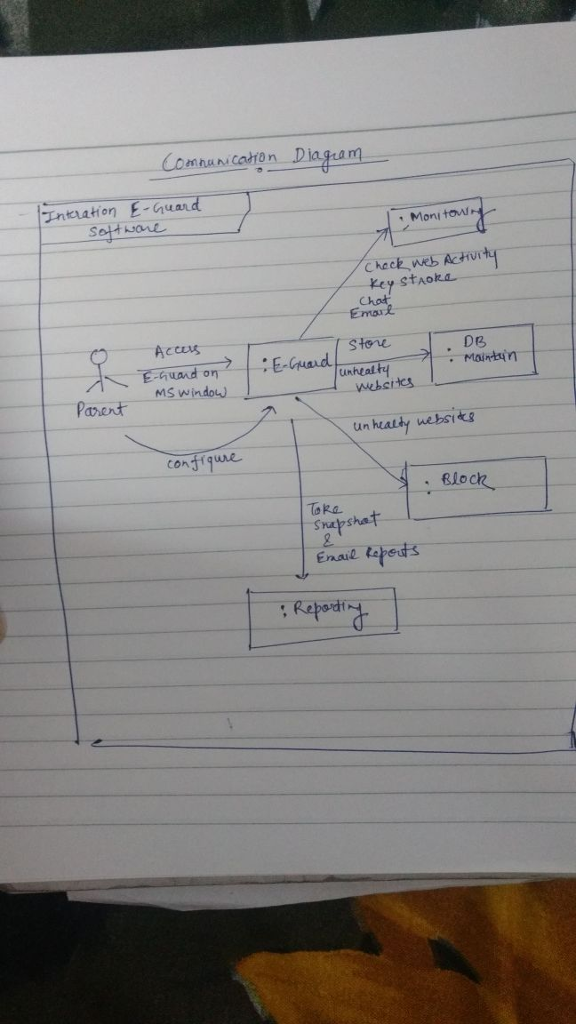 Communication Diagram
Intration E-Guard
Software
: Monitoring
Check Web Activity
Key Stroke
Chat
Email
Access
E-Guard on
MS window
: E-Guard
Store
unhealty
websites
: DB
: Maintain
Parent
configure
unhealty websites
: Block
Take
Snapshot
&
Email Reports
: Reporting